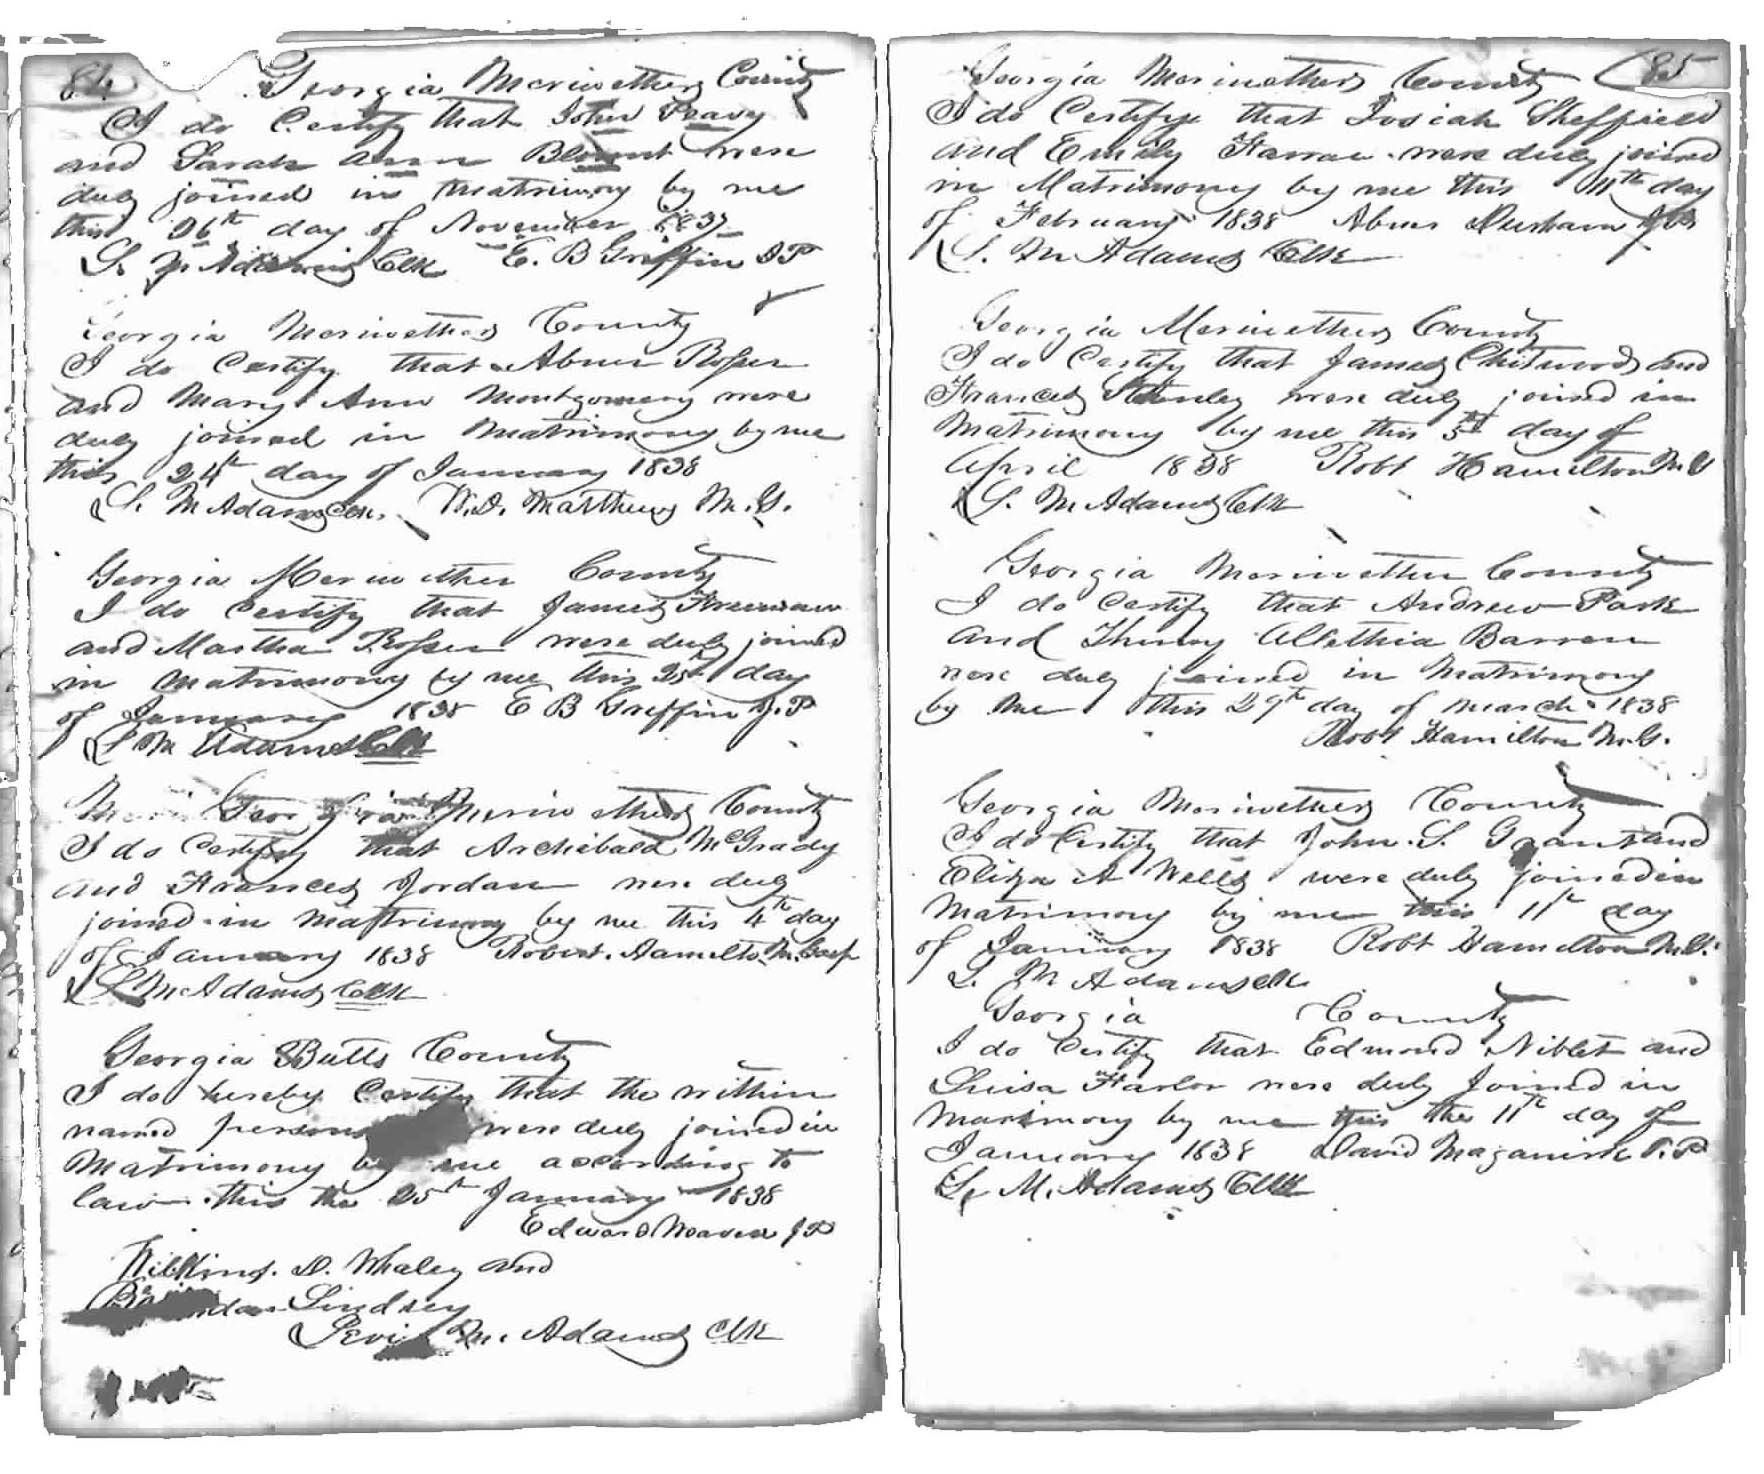 84
Georgia Meriwether County
I do Certify that John Peavy
and Sarah Ann Blount were
duly joined in matrimony by me
this 26th day of November 1837
L. M Adams Clk E. B Griffin J P
Georgia Meriwether County
I do Certify that Abner Rosser
and Mary Ann Montgomery were
duly joined in Matrimony by me
this 24th day of January 1838
L. M Adams Clk. W. D. Matthews M. G.
Georgia Meriwether County
I do Certify that James Freeman
and Martha Rosser were duly joined
in matrimony by me this 25th day
of January 1838 E B Griffin J. P
L M Adams Clk
Georgia Meriwether County
I do Certify that Archibald McGrady
and Frances Jordan were duly
joined in Matrimony by me this 4th day
of January 1838 Robert. Hamilton M.
L M Adams Clk
Georgia Butts County
I do hereby Certify that the within
named persons were duly joined in
Matrimony by me according to
law this the 25th January 1838
Edward Weaver J P
Wilkins. D. Whaley and
Lindsey
Levi M. Adams Clk
85
Georgia Meriwether County
I do Certify that Josiah Sheffield
and Emily were duly joined
in Matrimony by me this 11th day
of February 1838 Abner Durham
L. M Adams Clk
Georgia Meriwether County
I do Certify that James Chitwood and
Frances were duly joined in
Matrimony by me this 5th day of
April 1838 Robt Hamilton M G
L. M Adams Clk
Georgia Meriwether County
I do Certify that Andrew Park
and Alethia Barron
were duly joined in Matrimony
by me this 29th day of March 1838
Robt Hamilton M. G.
Georgia Meriwether County
I do Certify that John. S. Grant and
Eliza A Wells were duly joined in
Matrimony by me this 11th day
of January 1838 Robt Hamilton M. G.
L. M Adams Clk
Georgia County
I do Certify that Edmond Niblet and
Luisa Harlor were duly joined in
Matrimony by me this the 11th day of
January 1838 David J. P
L. M. Adams Clk